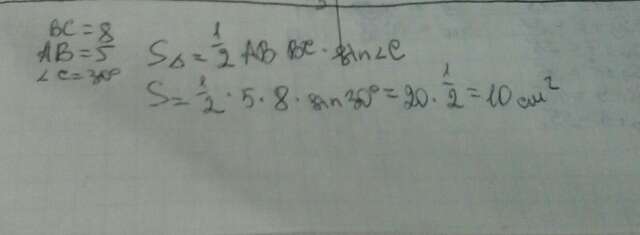 BC = 8
AB = 5
∠C = 30°
S△ = 1/2 AB BC · sin∠C
S = 1/2 · 5 · 8 · sin 30° = 20 · 1/2 = 10 см²